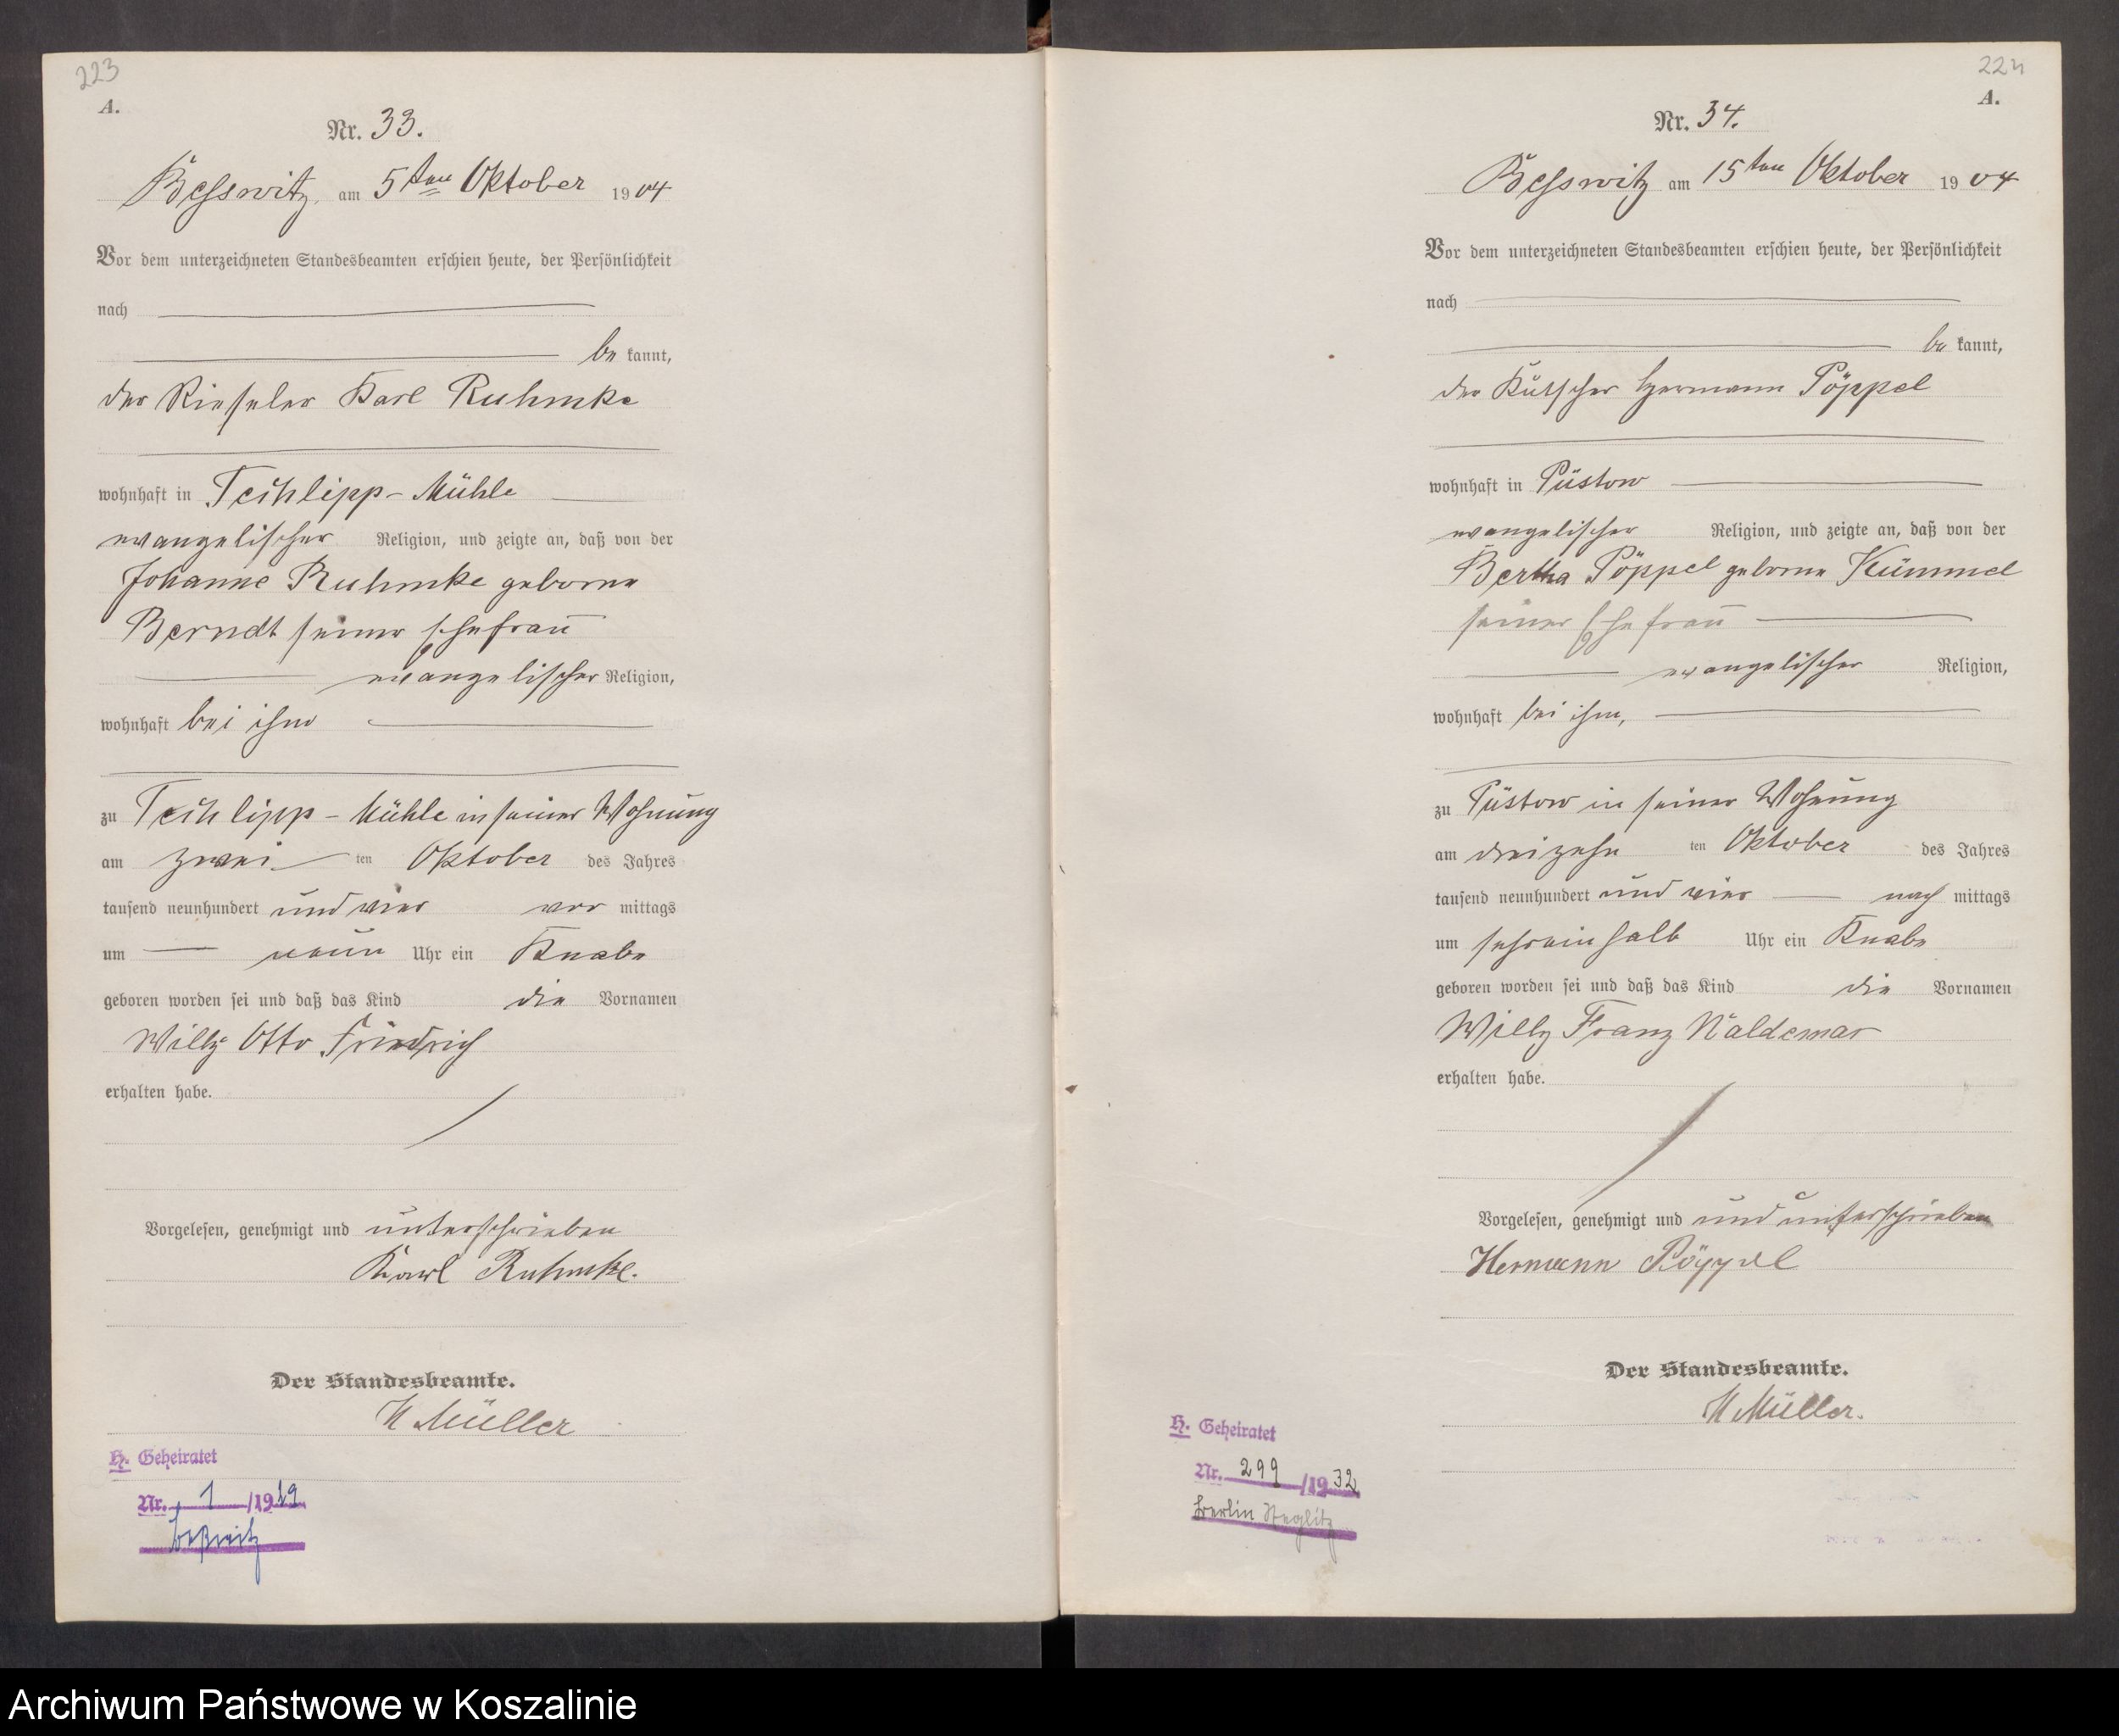 223
A.
Nr. 33.
Besswitz, am 5ten Oktober 1904
Vor dem unterzeichneten Standesbeamten erschien heute, der Persönlichkeit
nach
be kannt,
der Rieseler Karl Ruhmke
wohnhaft in Techlipp-Mühle
evangelischer Religion, und zeigte an, daß von der
Johanne Ruhmke geborne
Berndt seiner Ehefrau
evangelischer Religion,
wohnhaft bei ihm
zu Techlipp-Mühle in seiner Wohnung
am zwei ten Oktober des Jahres
tausend neunhundert und vier vor mittags
um neun Uhr ein Knabe
geboren worden sei und daß das Kind die Vornamen
Willy Otto Friedrich
erhalten habe.
Vorgelesen, genehmigt und unterschrieben
Karl Ruhmke.
Der Standesbeamte.
Müller
H. Geheiratet
Nr. 1 /1929
Beßwitz
224
A.
Nr. 34.
Besswitz am 15ten Oktober 1904
Vor dem unterzeichneten Standesbeamten erschien heute, der Persönlichkeit
nach
be kannt,
der Kutscher Hermann Pöppel
wohnhaft in Püstow
evangelischer Religion, und zeigte an, daß von der
Bertha Pöppel geborne Kümmel
seiner Ehefrau
evangelischer Religion,
wohnhaft bei ihm,
zu Püstow in seiner Wohnung
am dreizehn ten Oktober des Jahres
tausend neunhundert und vier nach mittags
um sechseinhalb Uhr ein Knabe
geboren worden sei und daß das Kind die Vornamen
Willy Franz Waldemar
erhalten habe.
Vorgelesen, genehmigt und und unterschrieben
Hermann Pöppel
Der Standesbeamte.
Müller.
H. Geheiratet
Nr. 299 /1932
Berlin Steglitz
Archiwum Państwowe w Koszalinie